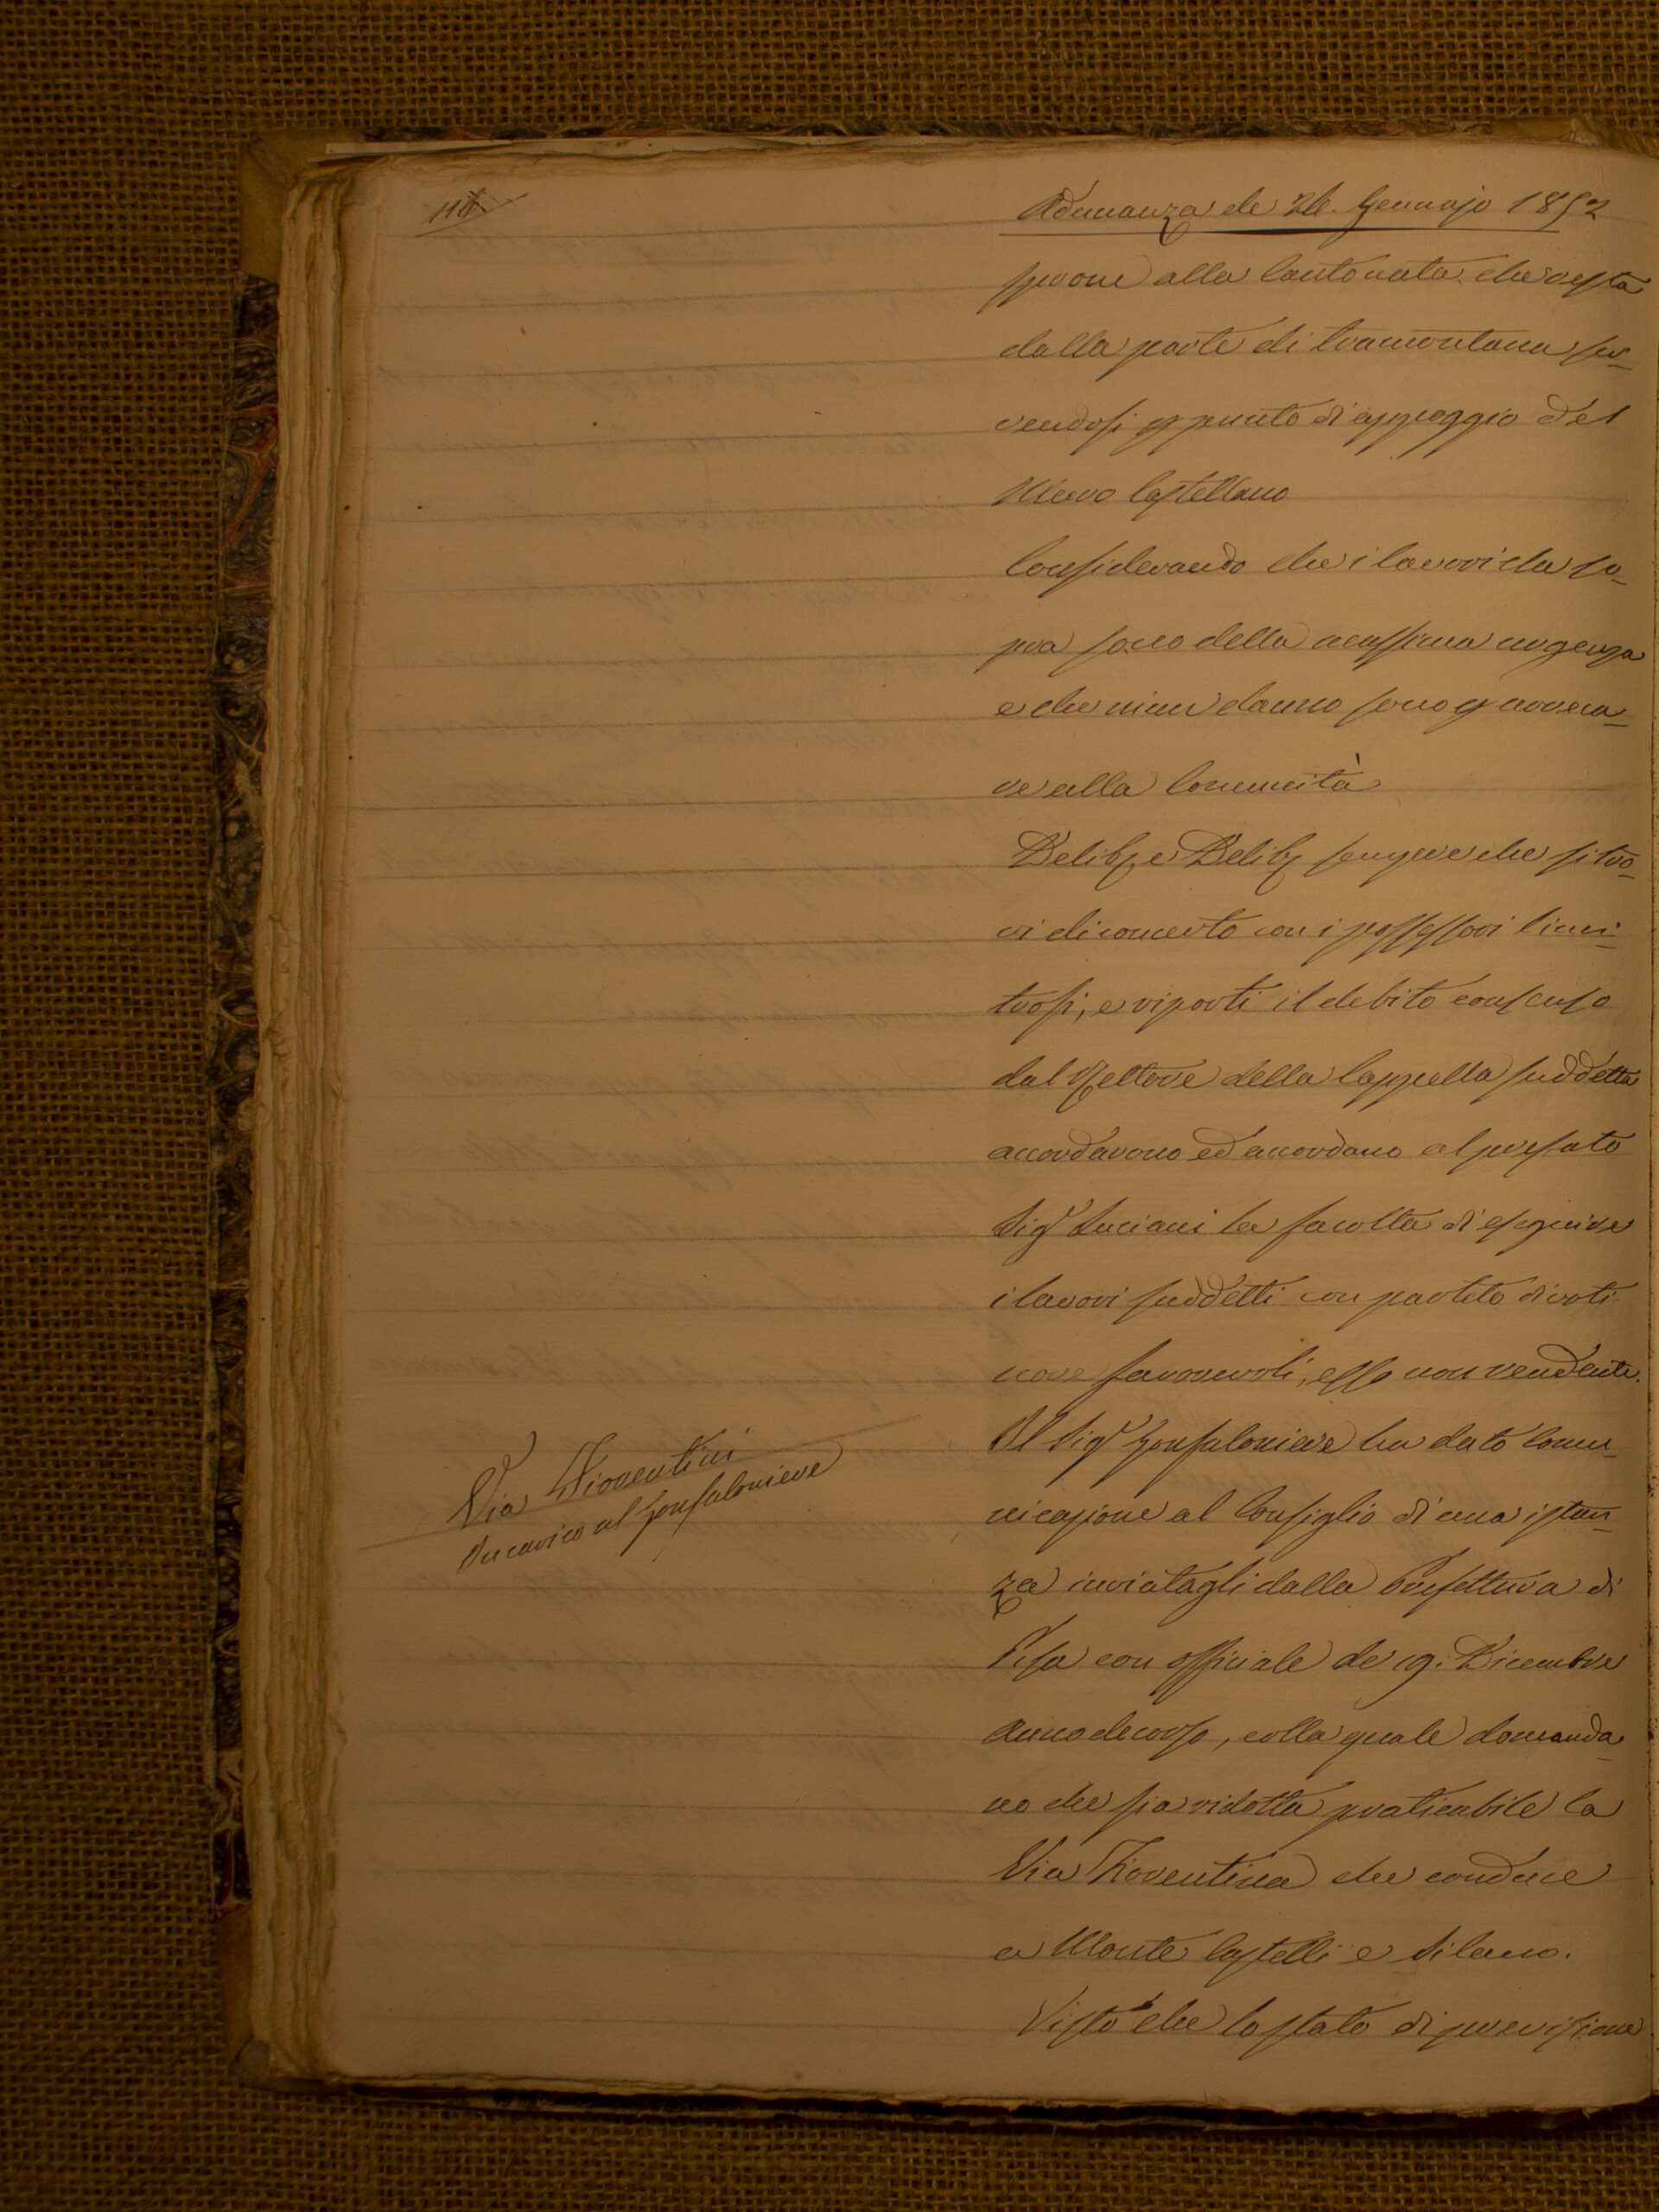 Adunanza de 26. Gennajo 1852
sprone alla Cantonata che resta
dalla parte di tramontana ser-
vendosi p punto di appoggio del
Muro Castellano
Considerando che i lavori da so-
pra sono della massima urgenza
e che niun danno sono p arreca-
re alla Comunità
Delib e Delib sempre che si tro-
vi di concerto con i possessori limi-
trofi, e riporti il debito consenso
dal Rettore della Cappella suddetta
accordarono ed accordano al prefato
Sigr Luciani la facoltà di eseguire
i lavori suddetti con partito di voti
nove favorevoli, esso non rendente.
Via Fiorentini
Incarico al Gonfaloniere
Il Sigr Gonfaloniere ha dato comu-
nicazione al Consiglio di una istan-
za inviatagli dalla Prefettura di
Pisa con officiale de 19. Dicembre
Anno decorso, colla quale domanda-
no che sia ridotta praticabile la
Via Fiorentina che conduce
a Monte Castelli e Silano.
Visto che lo stato di previsione